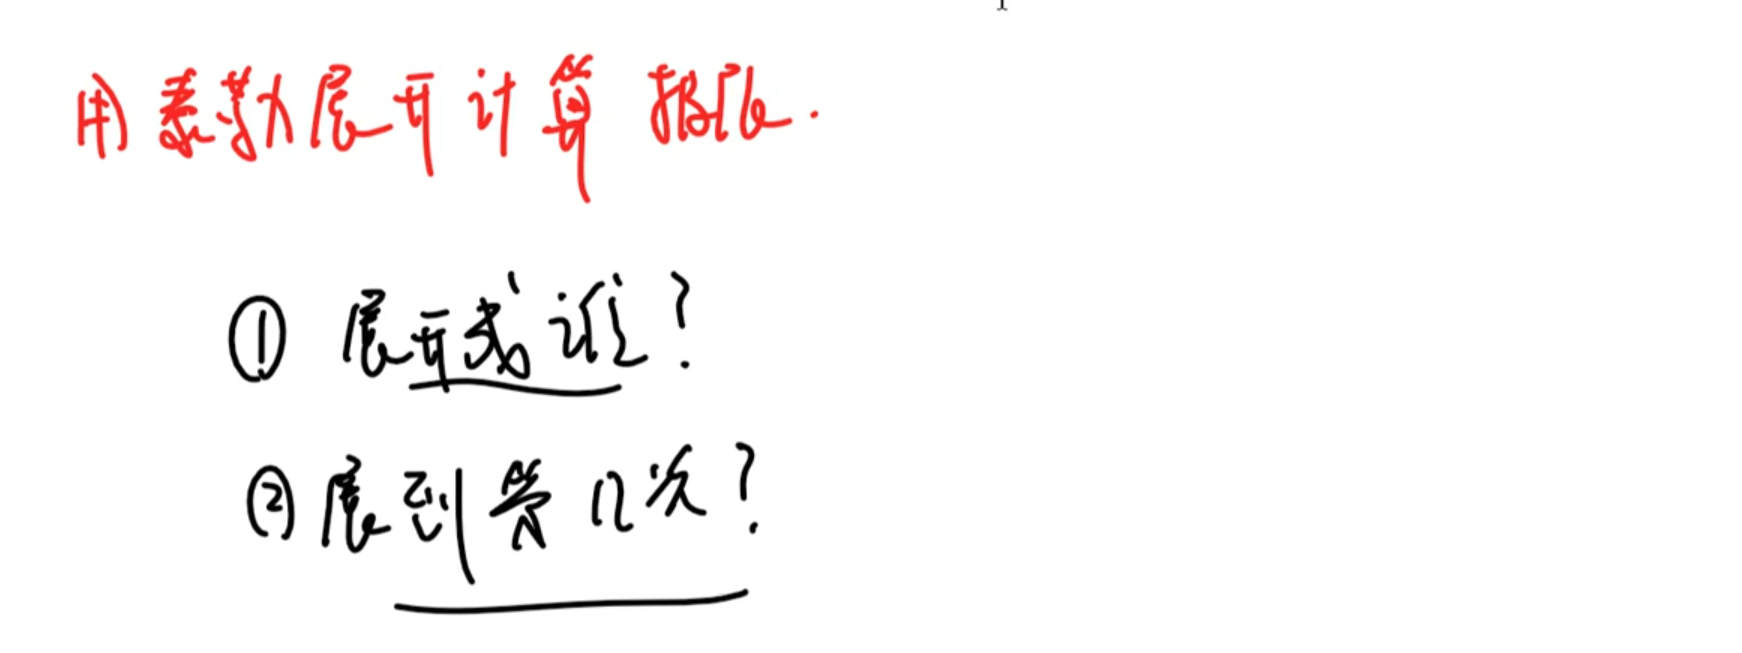 用泰勒展开计算极限.
① 展开式谁?
② 展到第几次?